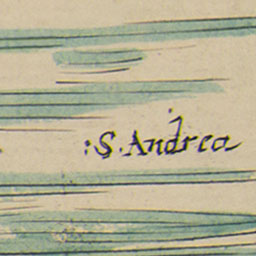 :S. Andrea